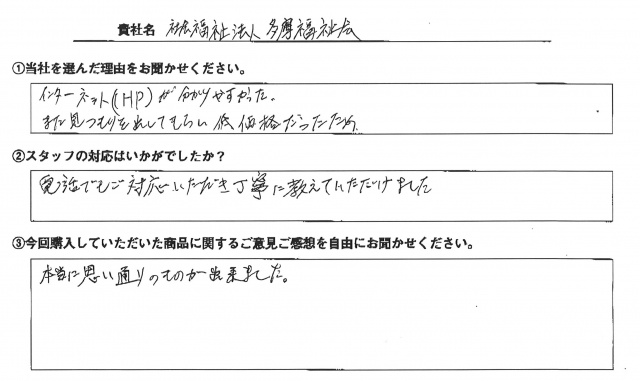 貴社名 社会福祉法人 多摩福祉会
①当社を選んだ理由をお聞かせください。
インターネット(HP)が分かりやすかった。
また見つもりを出してもらい低価格だったため
②スタッフの対応はいかがでしたか?
電話でもご対応いただき丁寧に教えていただけました
③今回購入していただいた商品に関するご意見ご感想を自由にお聞かせください。
本当に思い通りのものが出来ました。